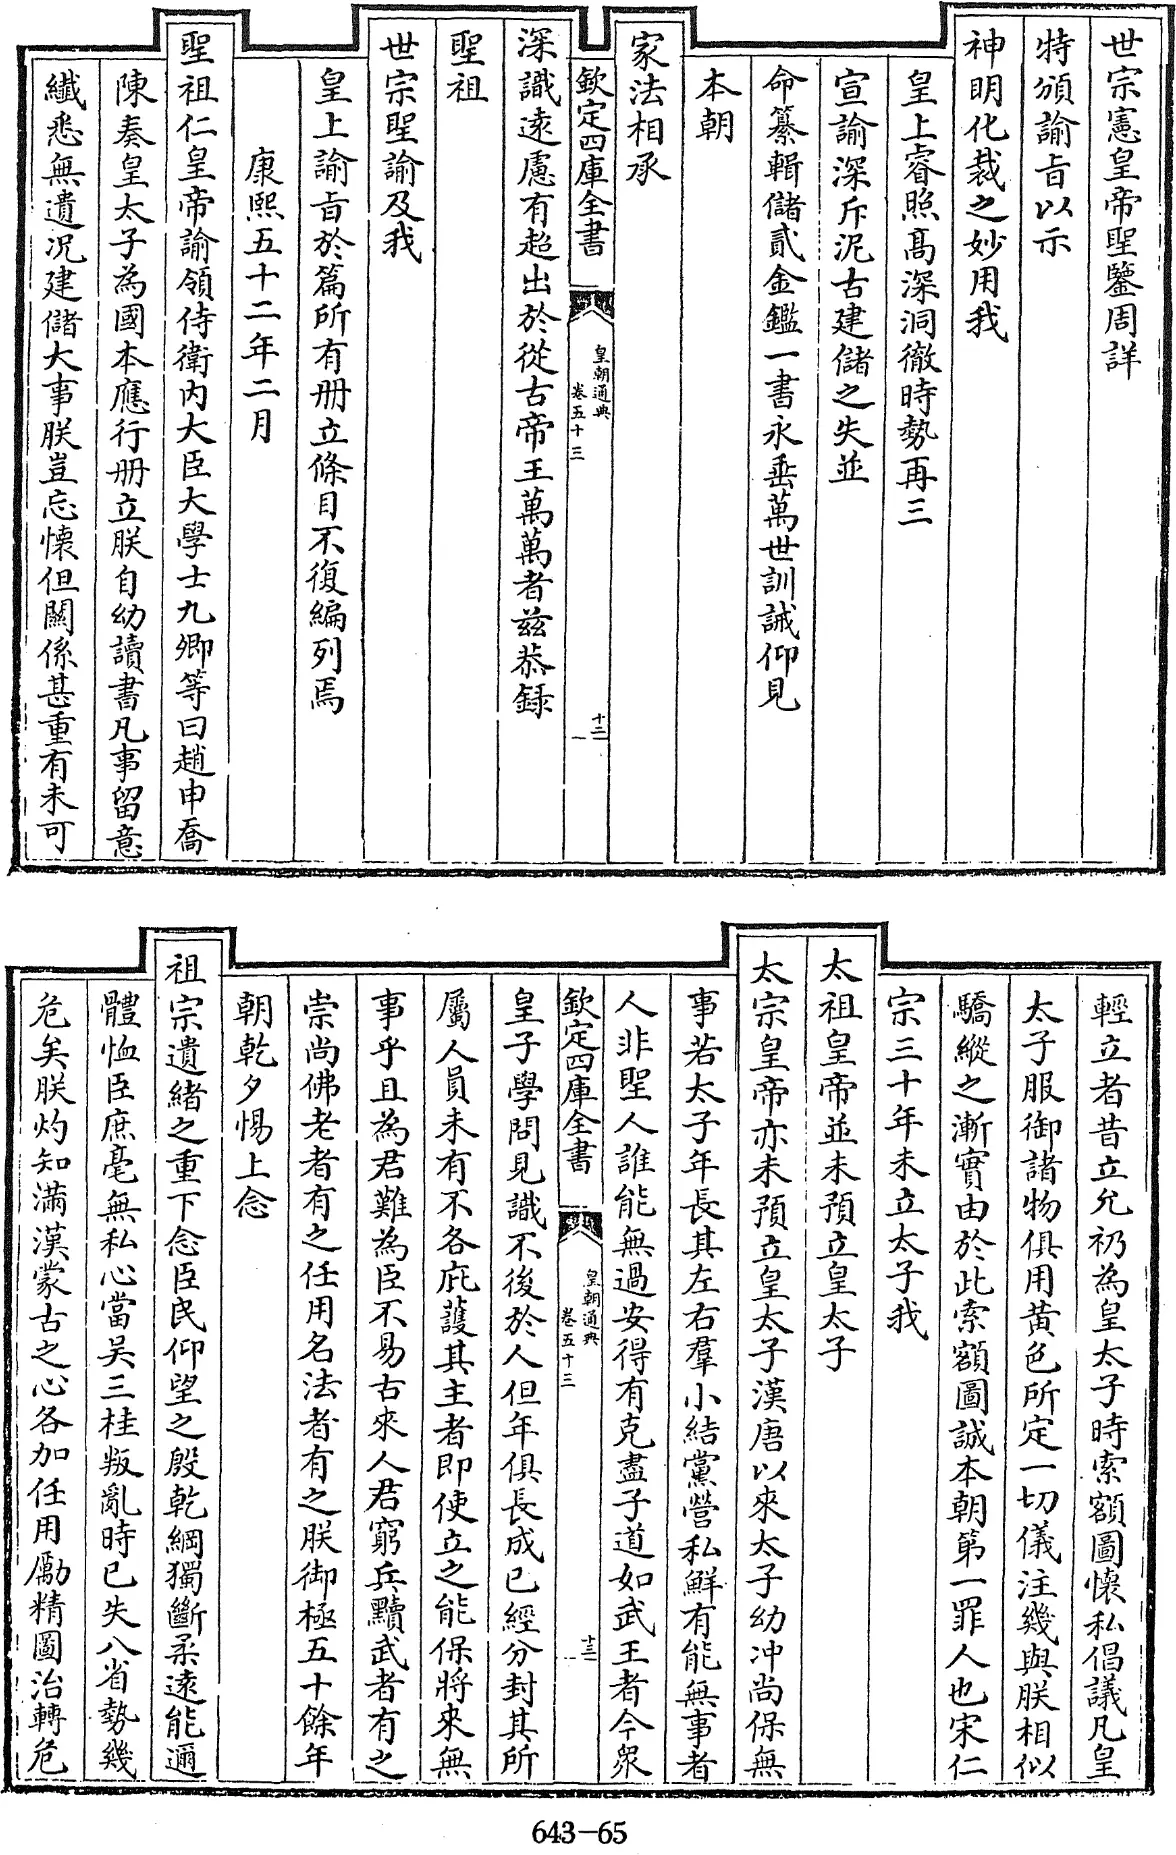 世宗憲皇帝聖鑒周詳
特頒諭旨以示
神明化裁之妙用我
皇上睿照高深洞徹時勢再三
宣諭深斥泥古建儲之失並
命纂輯儲貳金鑑一書永垂萬世訓誡仰見
本朝
家法相承
欽定四庫全書
皇朝通典
卷五十三
十二
深識遠慮有超出於從古帝王萬萬者茲恭錄
聖祖
世宗聖諭及我
皇上諭旨於篇所有冊立條目不復編列焉
康熙五十二年二月
聖祖仁皇帝諭領侍衛內大臣大學士九卿等曰趙申喬
陳奏皇太子為國本應行冊立朕自幼讀書凡事留意
纖悉無遺況建儲大事朕豈忘懷但關係甚重有未可
輕立者昔立允礽為皇太子時索額圖懷私倡議凡皇
太子服御諸物俱用黃色所定一切儀注幾與朕相似
驕縱之漸實由於此索額圖誠本朝第一罪人也宋仁
宗三十年未立太子我
太祖皇帝並未預立皇太子
太宗皇帝亦未預立皇太子漢唐以來太子幼沖尚保無
事若太子年長其左右羣小結黨營私鮮有能無事者
人非聖人誰能無過安得有克盡子道如武王者今眾
欽定四庫全書
皇朝通典
卷五十三
十三
皇子學問見識不後於人但年俱長成已經分封其所
屬人員未有不各庇護其主者即使立之能保將來無
事乎且為君難為臣不易古來人君窮兵黷武者有之
崇尚佛老者有之任用名法者有之朕御極五十餘年
朝乾夕惕上念
祖宗遺緒之重下念臣民仰望之殷乾綱獨斷柔遠能邇
體恤臣庶毫無私心當吳三桂叛亂時已失八省勢幾
危矣朕灼知滿漢蒙古之心各加任用勵精圖治轉危
643-65